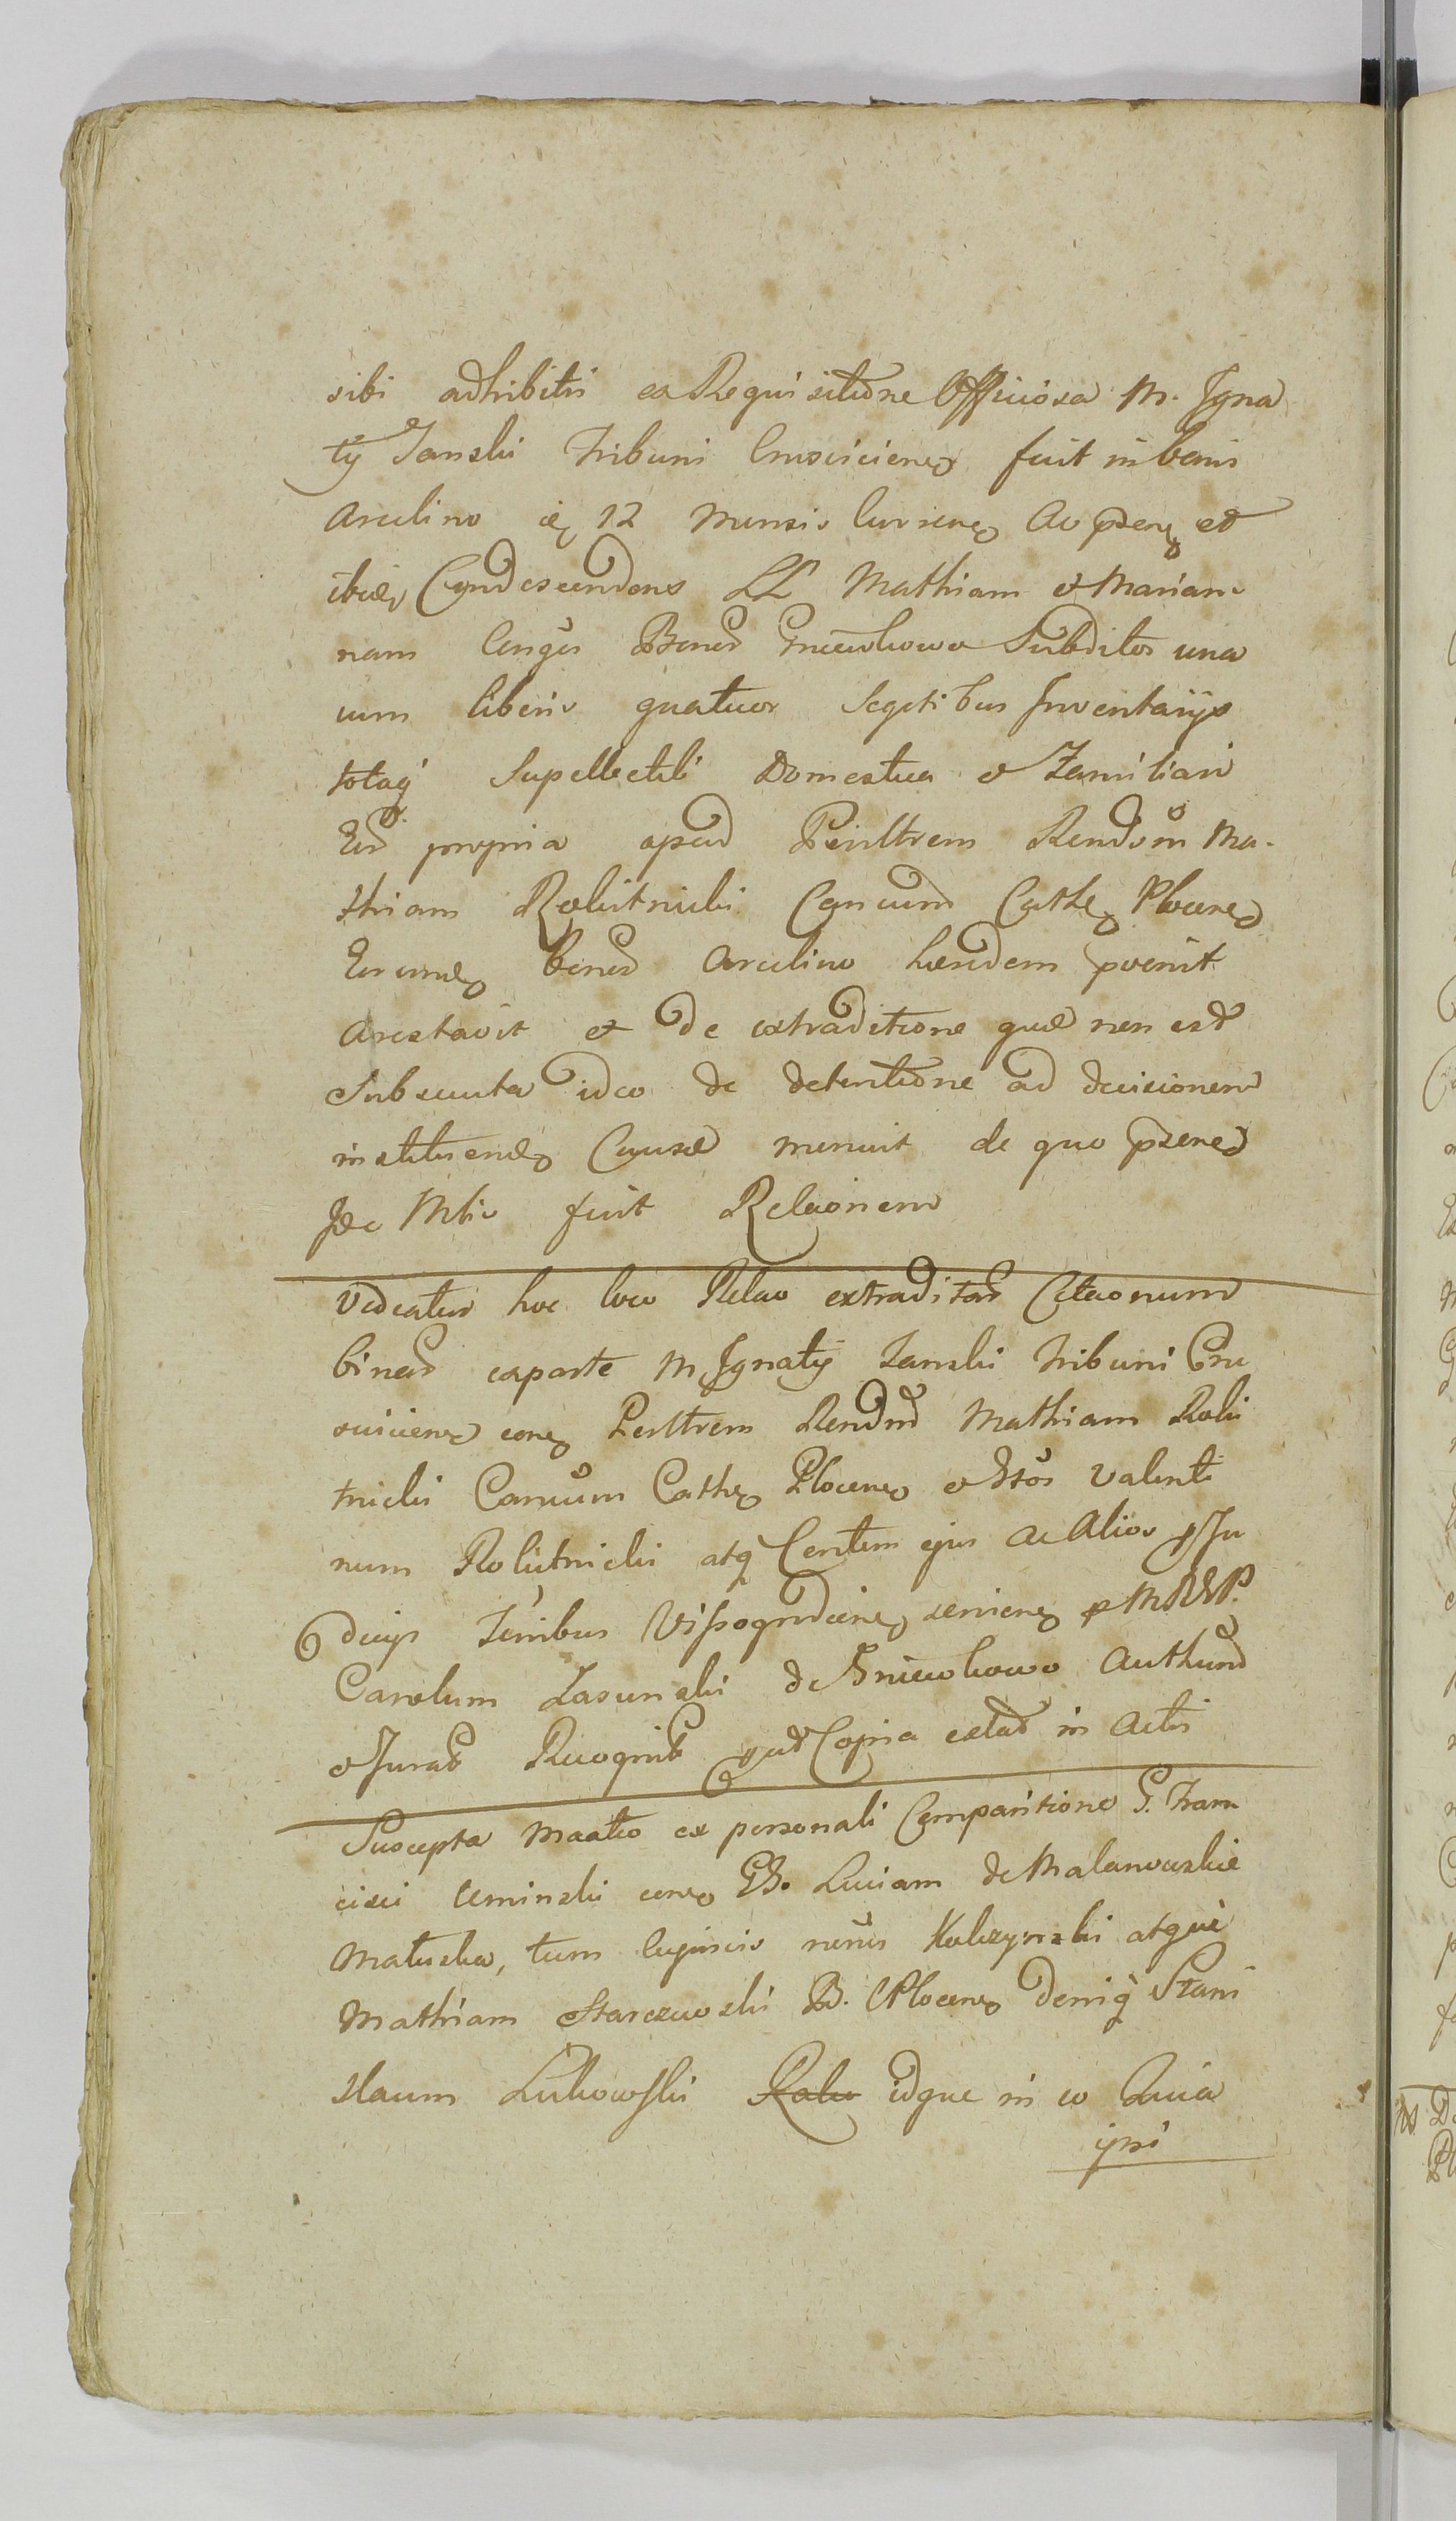 sibi adhibitis ex Requisitione Officiosa M. Igna
tij Zanski Tribuni Crusvicien fuit in bonis
Arcelino die 12 Mensis Currenr Ac psen et
ibid Condescendens LL Mathiam et Marian
nam Conges Bonor Gniewkowo Subditos una
cum liberis quatuor Segetibus Inventarijs
totaq Supellectili Domestica et Familiari
Eor propria apud Perilltrem Rendum Ma-
thiam Rokitnicki Cancum Cathe Plocen
Eorund bonor Arcelino haeredem pvenit
Arestavit et de extraditione quae non est
Subsecuta ideo de detentione ad decisionem
instituend Causae monuit de quo psens
Idc Mtis fuit Relaonem
Videatur hoc loco Relao extraditar Citaonum
binar ex parte M Ignatij Zanski Tribuni Cru
svicien con Perlltrem Rendm Mathiam Roki
tnicki Cancum Cathe Plocen et Gsos Valenti
num Rokitnicki atq Contem ejus ac Alios p Ju
dicijs Tenibus Vissogrodcien servien p MRGP
Carolum Lasunski de Gniewkowo Authum
et Jurat Recognit qud Copia extat in Actis
Suscepta Maatio ex personali Comparitione G. Fran
cisci Ceminski con GG. Luciam de Malanowskie
Matuska, tum Cujuscis nenis Kalczynski atque
Mathiam Starczewski B. Plocen deniq Stani
slaum Lukowski Rala idque in eo Quia
ipsi